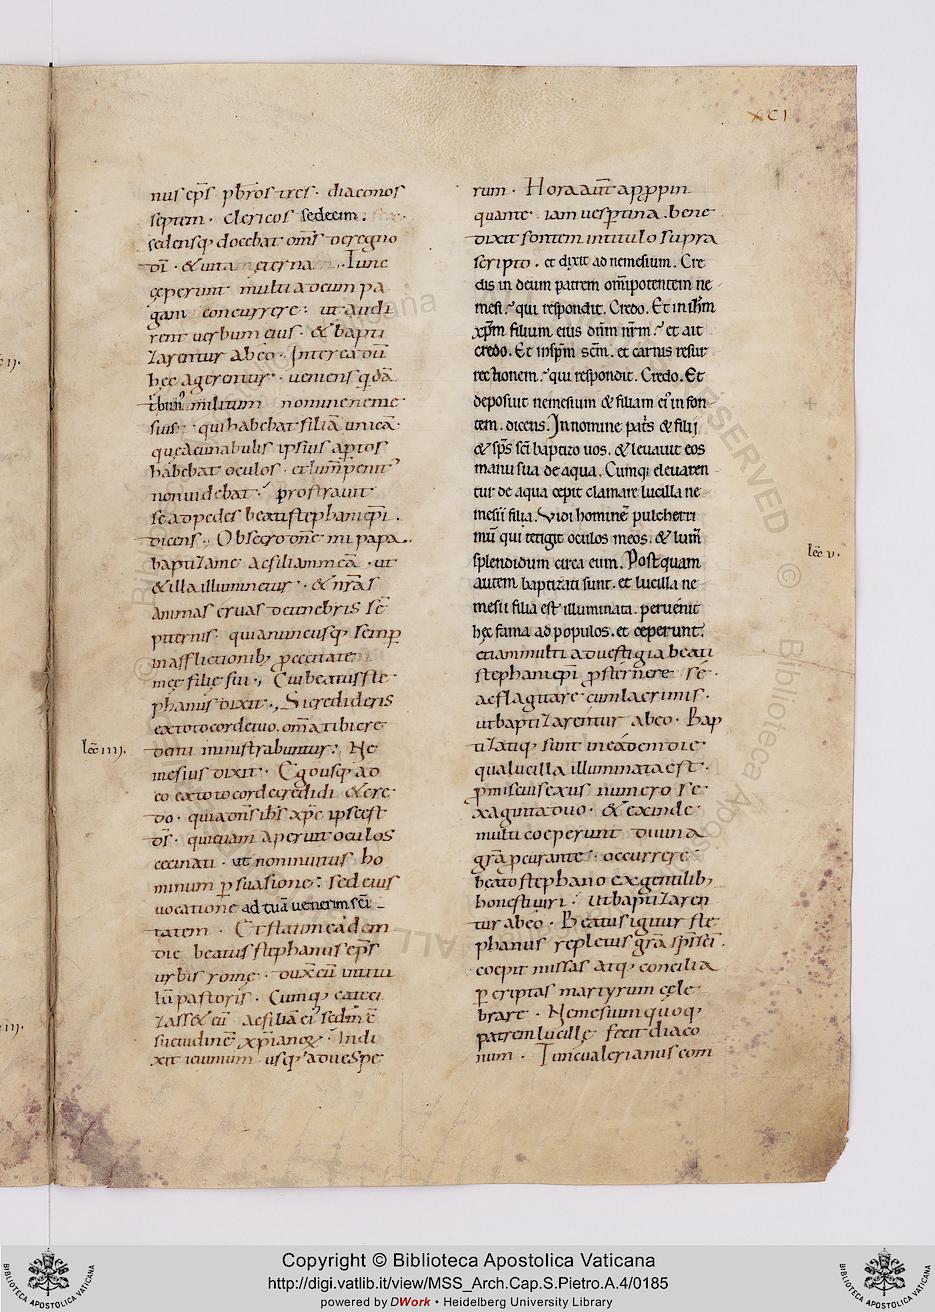 XCI
nus ep̄s pb̄ros tres · diaconos
septem · clericos sedecim .
sedensq; docebat om̄s de regno
dī · & uita eterna . Tunc
ceperunt multi adeum pa
gani concurrere · ut audi
rent uerbum eius · & bapti
zarentur ab eo . Interea dū
hec agerentur · ueniens qdā
tbun' militum nomine neme
sius · qui habebat filiā unicā ·
que acunabulis ipsius aptos
habebat oculos · et lum̄ penit'
non uidebat · prostrauit
se ad pedes beati stephani ep̄i .
dicens . Obsecro dn̄e mi papa .
baptiza me ac filiam meā · ut
& illa illuminetur · & nr̄as
animas eruas de tenebris sē
piternis · quia nuncusq; semp
in afflictionib; p cecitate
mee filie fui . Cui beatus ste
phanus dixit . Si credideris
ex toto corde tuo . om̄a tibi cre
denti ministrabuntur . Ne
lec̄ iiij.
mesius dixit · Ego usq; ad
eo ex toto corde credidi & cre
do · quia dn̄s ih̄s xp̄c ipse est
dī̄s · qui etiam aperuit oculos
ceci nati · ut non inuitus ho
minum p suasione : sed eius
uocatione ad tuā uenerim scī
tatem · Et statim eadem
die beatus stephanus ep̄s
urbis rome · duxit eū in titu
lū pastoris · Cumq; cateci
zass& eū ac filiā ei' scdm̄
suetudinē xpianor · Indi
xit ieiunium usq; ad uespe
rum · Hora aut̄ appropin
quante iam uespertina . bene
dixit fontem in titulo supra
scripto . et dixit ad nemesium . Cre
dis in deum patrem om̄ipotentem ne
mesi ? qui respondit . Credo . Et in ih̄m
xp̄m filium eius dn̄m nr̄m ? et ait
credo . Et in sp̄m scm̄ . et carnis resur
rectionem ? qui respondit . Credo . Et
deposuit nemesium & filiam ei' in fon
tem . dicens . In nomine patr̄s & filij
& sp̄s sc̄i baptizo uos . & leuauit eos
manu sua de aqua . Cumq; eleuaren
tur de aqua cepit clamare lucilla ne
mesii filia . Vidi hominē pulcherri
mū qui tetigit oculos meos . & lum̄
splendidum circa eum . Postquam
lec̄ v.
autem baptizati sunt . et lucilla ne
mesii filia est illuminata . peruenit
hec fama ad populos . et ceperunt
etiam multi ad uestigia beati
stephani ep̄i p̄sternere sē ·
ac flagitare cum lacrimis ·
ut baptizarentur ab eo · Bap
tizatiq; sunt in eadem die
qua lucilla illuminata est ·
promiscui sexus numero se
xaginta duo · & exinde
multi coeperunt diuina
gr̄a p̄curante · occurrere
beato stephano ex gentilib;
honesti uiri · Ut baptizaren
tur ab eo · Beatus igitur ste
phanus repletus gr̄a sp̄s sc̄i ·
coepit missas atq; concilia
p criptas martyrum cele
brare · Nemesium quoq;
patrem lucille fecit diaco
num · Tunc ualerianus com
Copyright © Biblioteca Apostolica Vaticana
http://digi.vatlib.it/view/MSS_Arch.Cap.S.Pietro.A.4/0185
powered by DWork • Heidelberg University Library